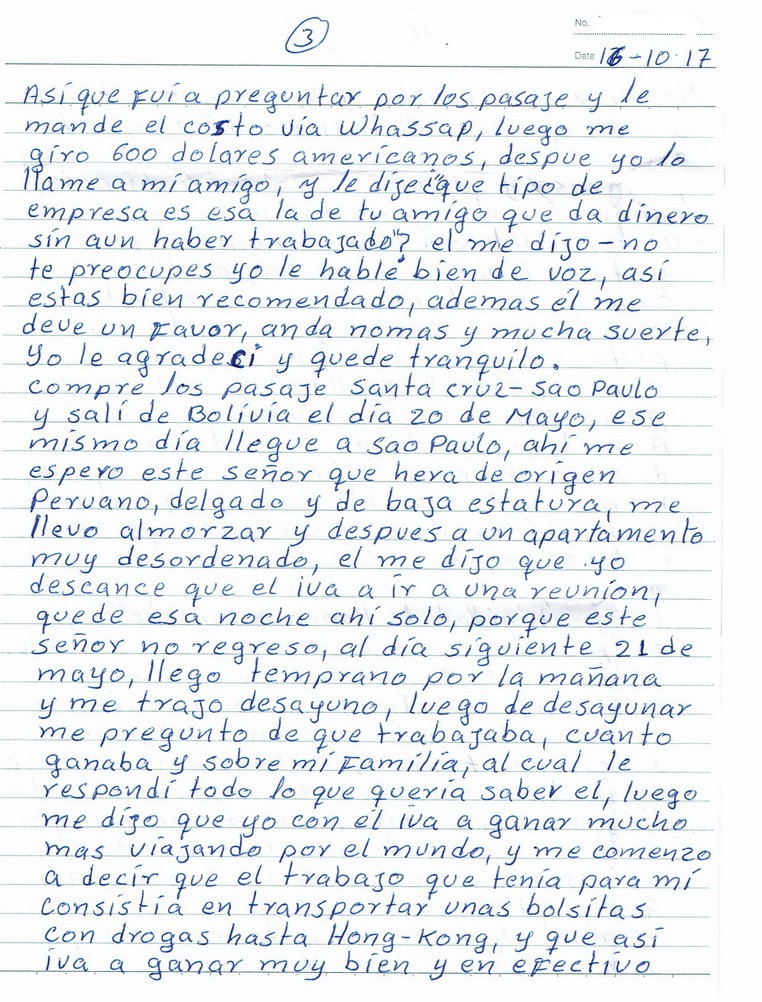 3
No.
Date 16-10-17
Así que fui a preguntar por los pasaje y le
mande el costo vía Whassap, luego me
giro 600 dolares americanos, despue yo lo
llame a mi amigo, y le dije ¿"que tipo de
empresa es esa la de tu amigo que da dinero
sin aun haber trabajado"? el me dijo - no
te preocupes yo le hablé bien de voz, así
estas bien recomendado, ademas él me
deve un favor, anda nomas y mucha suerte,
yo le agradecí y quede tranquilo.
compre los pasaje Santa cruz - Sao Paulo
y salí de Bolivia el día 20 de Mayo, ese
mismo día llegue a Sao Paulo, ahí me
espero este señor que hera de origen
Peruano, delgado y de baja estatura, me
llevo almorzar y despues a un apartamento
muy desordenado, el me dijo que yo
descance que el iva a ir a una reunion,
quede esa noche ahí solo, porque este
señor no regreso, al día siguiente 21 de
mayo, llego temprano por la mañana
y me trajo desayuno, luego de desayunar
me pregunto de que trabajaba, cuanto
ganaba y sobre mi familia, al cual le
respondí todo lo que quería saber el, luego
me dijo que yo con él iva a ganar mucho
mas viajando por el mundo, y me comenzo
a decir que el trabajo que tenía para mí
consistía en transportar unas bolsitas
con drogas hasta Hong-Kong, y que así
iva a ganar muy bien y en efectivo